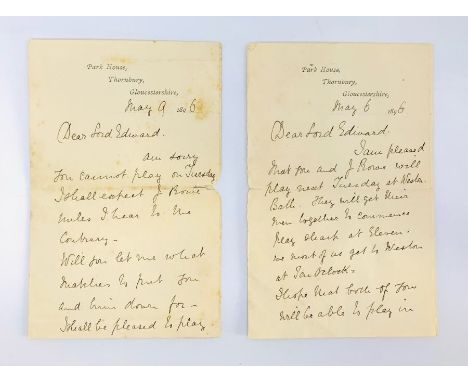 Park House,
Thornbury,
Gloucestershire,
May 9 1896
Dear Lord Edward.
am sorry
you cannot play on Tuesday
I shall expect J Rowe
unless I hear to the
Contrary -
Will you let me what
matches to put you
and him down for -
I shall be pleased to play
Park House,
Thornbury,
Gloucestershire,
May 6 1896
Dear Lord Edward.
I am pleased
that you and J Rowe will
play next Tuesday at
Bath. They will get their
men together to commence
play sharp at Eleven.
as most of us get to Weston
at Ten O'clock.
I hope that both of you
will be able to play in